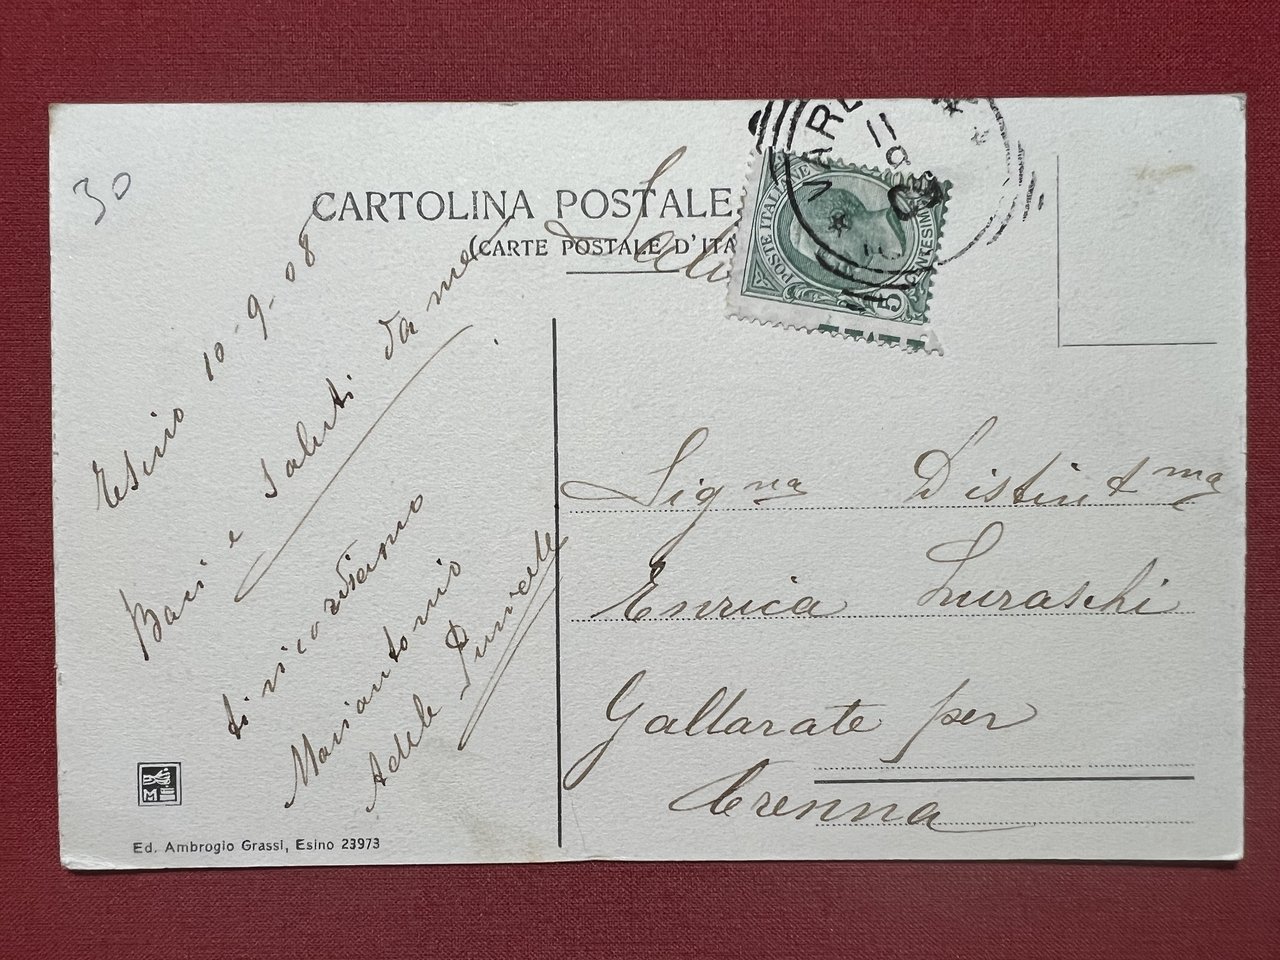 30
CARTOLINA POSTALE
(CARTE POSTALE D'ITA
POSTE ITALIANE
CENTESIMI
5
VARE
11
9
08
Esino 10-9-08
Baci e saluti da me
ti ricordiamo
Mariantonio
Adele
Sig na Distint ma
Enrica Luraschi
Gallarate per
Crenna
M
Ed. Ambrogio Grassi, Esino 23973